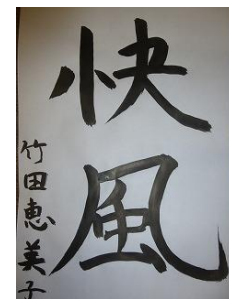 快風
竹田恵美子